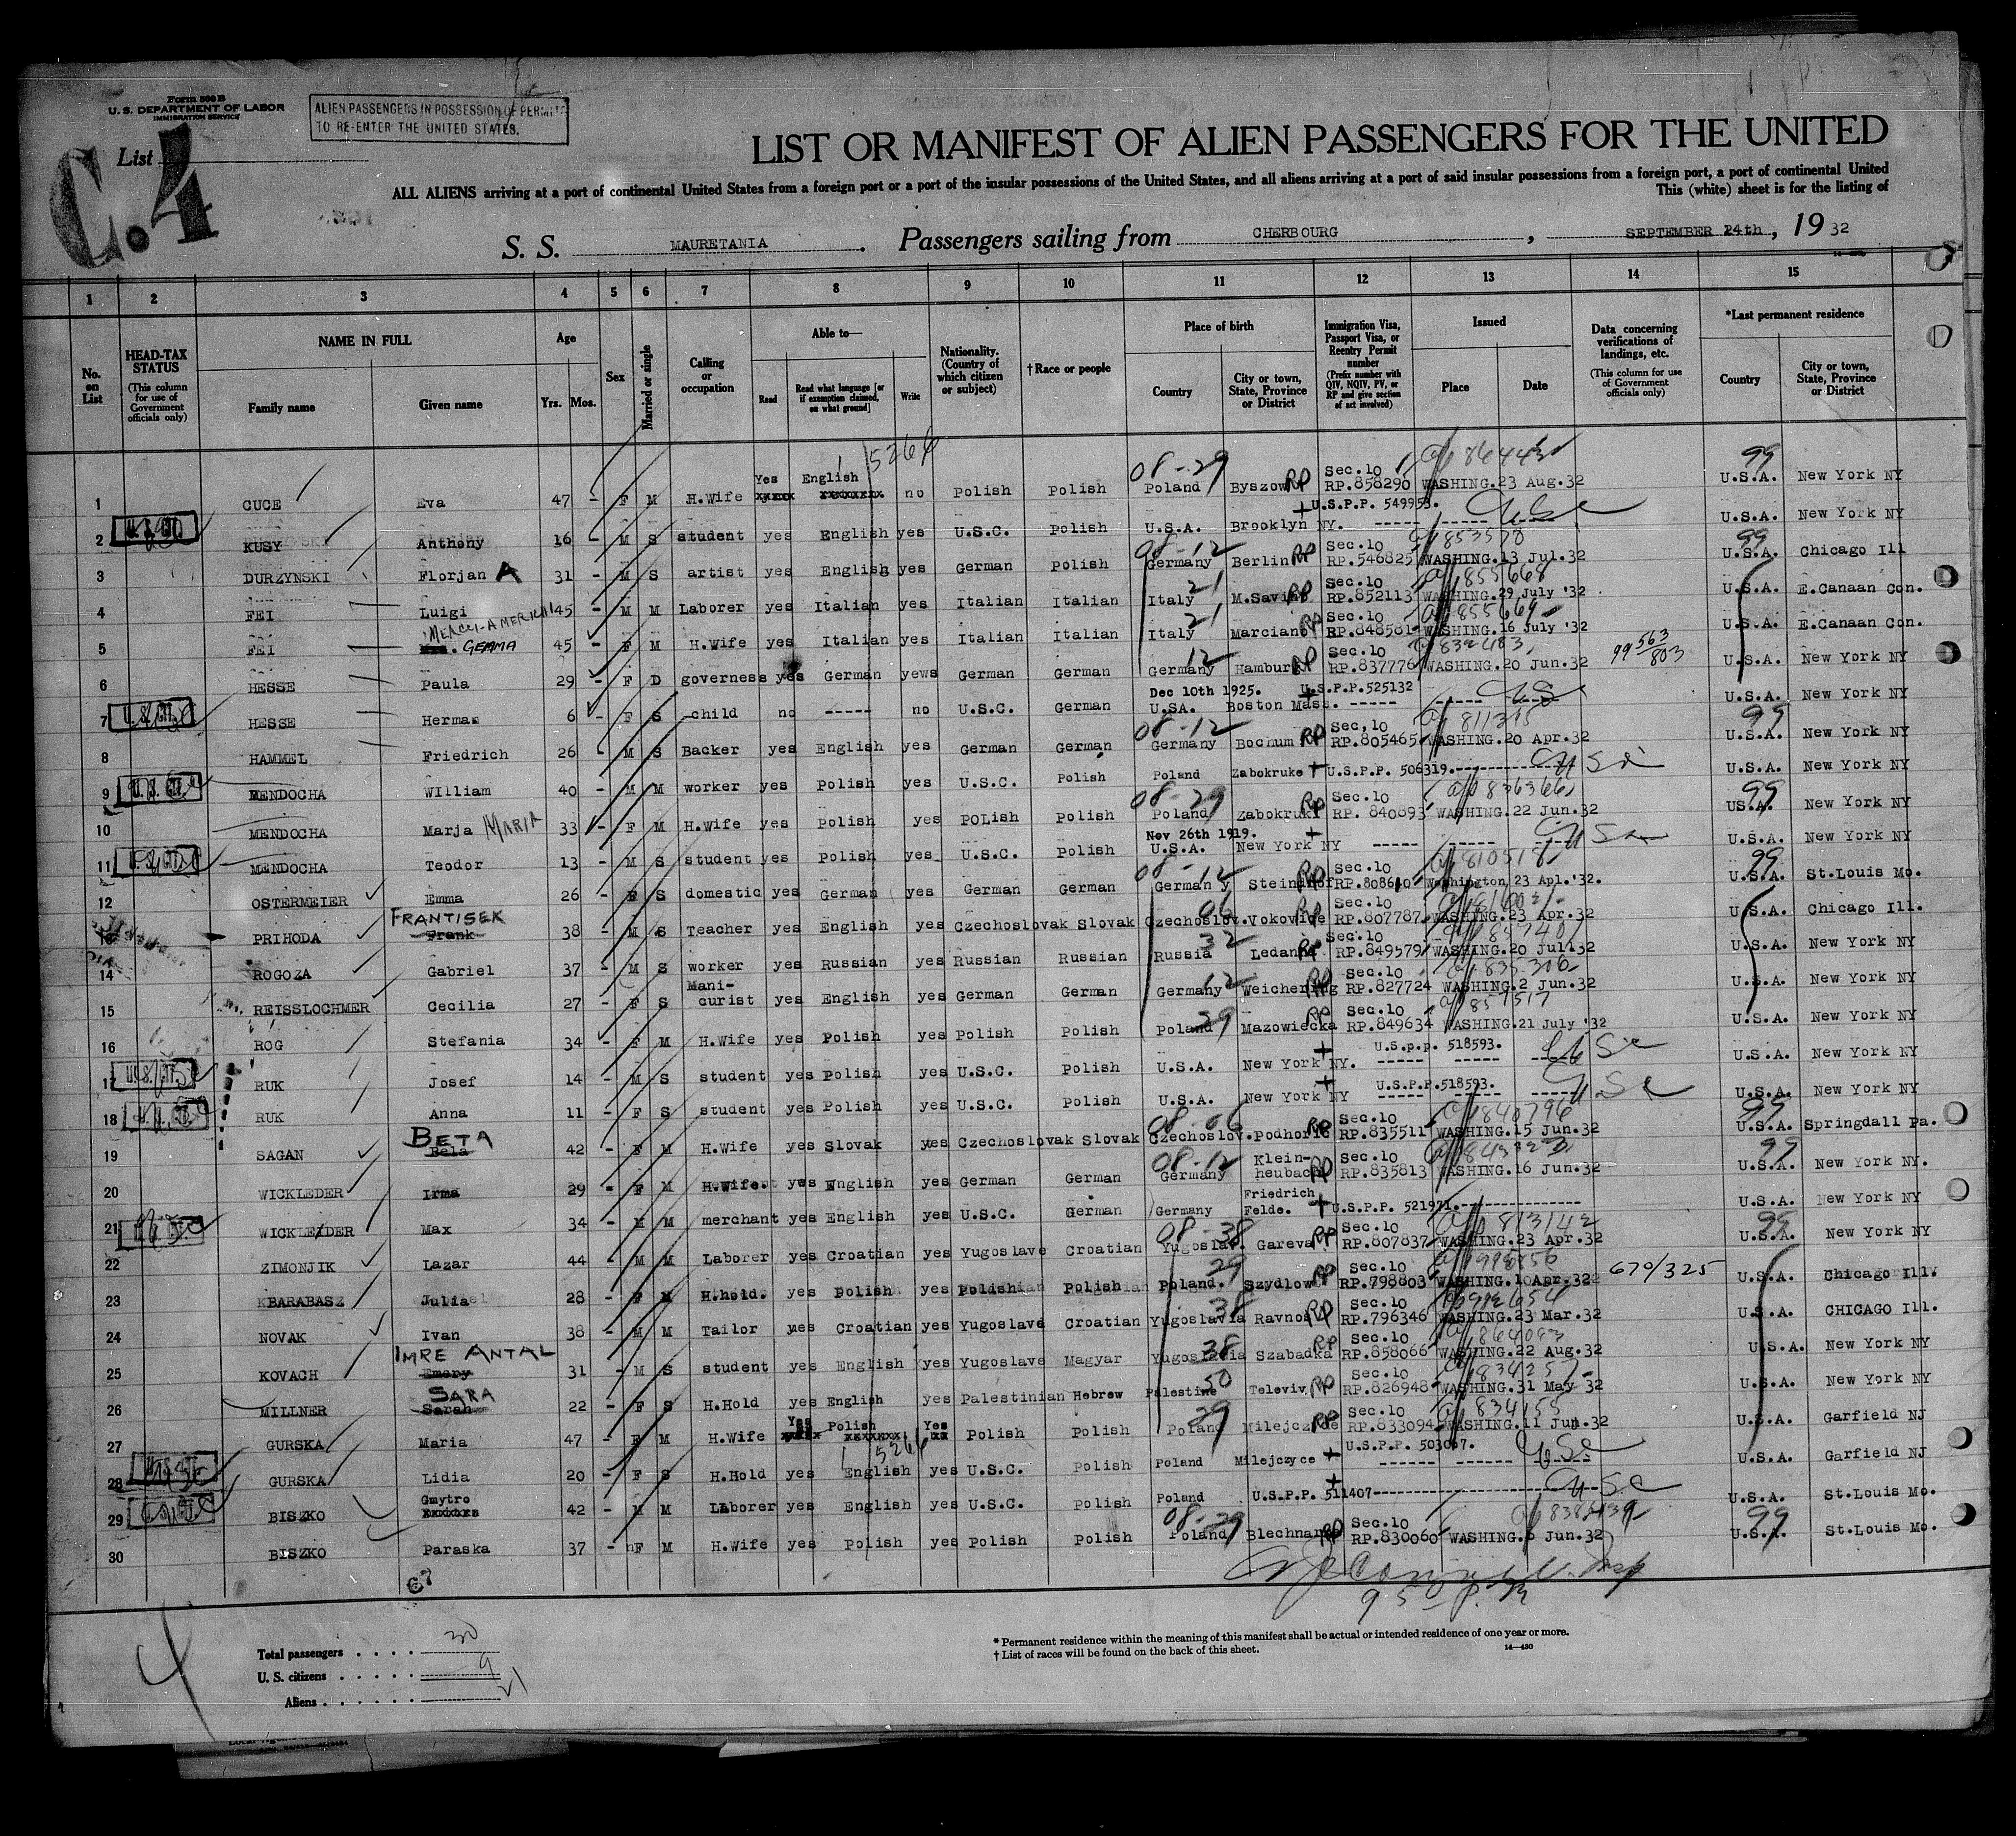 Form 500 B
U. S. DEPARTMENT OF LABOR
IMMIGRATION SERVICE
ALIEN PASSENGERS IN POSSESSION OF PERMITS
TO RE-ENTER THE UNITED STATES.
List
C.4
LIST OR MANIFEST OF ALIEN PASSENGERS FOR THE UNITED
ALL ALIENS arriving at a port of continental United States from a foreign port or a port of the insular possessions of the United States, and all aliens arriving at a port of said insular possessions from a foreign port, a port of continental United
This (white) sheet is for the listing of
S. S. MAURETANIA. Passengers sailing from CHERBOURG, SEPTEMBER 24th, 19 32
1 2 3 4 5 6 7 8 9 10 11 12 13 14 15
No. on List
HEAD-TAX STATUS
(This column for use of Government officials only)
NAME IN FULL
Family name Given name
Age
Yrs. Mos.
Sex
Married or single
Calling or occupation
Able to—
Read Read what language [or if exemption claimed, on what ground] Write
Nationality. (Country of which citizen or subject)
†Race or people
Place of birth
Country City or town, State, Province or District
Immigration Visa, Passport Visa, or Reentry Permit number
(Prefix number with QIV, NQIV, PV, or RP and give section of act involved)
Issued
Place Date
Data concerning verifications of landings, etc.
(This column for use of Government officials only)
*Last permanent residence
Country City or town, State, Province or District
1 CUCE Eva 47 - F M H.Wife Yes English no Polish Polish Poland Byszow RP Sec.10 RP.858290 WASHING.23 Aug.32 U.S.A. New York NY
2 KUSY Anthony 16 - M S student yes English yes U.S.C. Polish U.S.A. Brooklyn NY. U.S.P.P. 549953. ----- ----- U.S.A. New York NY
3 DURZYNSKI Florjan A 31 - M S artist yes English yes German Polish Germany Berlin RP Sec.10 RP.546825 WASHING.13 Jul.32 U.S.A. Chicago Ill
4 FEI Luigi 45 - M M Laborer yes Italian yes Italian Italian Italy M.Savino RP Sec.10 RP.852113 WASHING.29 July '32 U.S.A. E.Canaan Con.
5 FEI GEMMA 45 - F M H.Wife yes Italian yes Italian Italian Italy Marciano RP Sec.10 RP.848581 WASHING.16 July '32 U.S.A. E.Canaan Con.
6 HESSE Paula 29 - F D governess yes German yews German German Germany Hamburg RP Sec.10 RP.837776 WASHING.20 Jun.32 99 563/803 U.S.A. New York NY
7 HESSE Herman 6 - F S child no ----- no U.S.C. German Dec 10th 1925. U.SA. Boston Mass. U.S.P.P.525132 ----- ----- U.S.A. New York NY
8 HAMMEL Friedrich 26 - M S Backer yes English yes German German Germany Bochum RP Sec,10 RP.805465 WASHING.20 Apr.32 U.S.A. New York NY
9 MENDOCHA William 40 - M M worker yes Polish yes U.S.C. Polish Poland Zabokruke U.S.P.P. 506319. U.S.A. New York NY
10 MENDOCHA Marja MARIA 33 - F M H.Wife yes Polish yes POLish Polish Poland Zabokruki RP Sec.10 RP. 840893 WASHING.22 Jun.32 US.A. New York NY
11 MENDOCHA Teodor 13 - M S student yes Polish yes U.S.C. Polish Nov 26th 1919. U.S.A. New York NY ----- ----- U.S.A. New York NY
12 OSTERMEIER Emma 26 - F S domestic yes German yes German German Germany RP Sec.10 RP.808610 Washington, 23 Apl.'32. U.S.A. St.Louis Mo.
PRIHODA FRANTISEK Frank 38 - M S Teacher yes English yes Czechoslovak Slovak Czechoslov. RP Sec.10 RP.807787 WASHING.23 Apr.32 U.S.A. Chicago Ill.
14 ROGOZA Gabriel 37 - M S worker yes Russian yes Russian Russian Russia RP Sec.10 RP.849579 WASHING.20 Jul.32 U.S.A. New York NY
15 REISSLOCHMER Cecilia 27 - F S Mani-curist yes English yes German German Germany RP Sec.10 RP.827724 WASHING.2 Jun.32 U.S.A. New York NY
16 ROG Stefania 34 - F M H.Wife yes Polish yes Polish Polish Poland Mazowiecka RP Sec.10 RP.849634 WASHING.21 July '32 U.S.A. New York NY
17 RUK Josef 14 - M S student yes Polish yes U.S.C. Polish U.S.A. New York NY. U.S.P.P. 518593. ----- ----- U.S.A. New York NY
18 RUK Anna 11 - F S student yes Polish yes U.S.C. Polish U.S.A. New York NY U.S.P.P.518593. ----- ----- U.S.A. New York NY
19 SAGAN BETA Bela 42 - F M H.Wife yes Slovak yes Czechoslovak Slovak Czechoslov. RP Sec.10 RP.835511 WASHING.15 Jun.32 U.S.A. Springdall Pa.
20 WICKLEDER Irma 29 - F M H.Wife yes English yes German German Germany Klein-heubach RP Sec.10 RP.835813 WASHING.16 Jun.32 U.S.A. New York NY.
21 WICKLEIDER Max 34 - M M merchant yes English yes U.S.C. German Germany Friedrich Felde. U.S.P.P. 521971. U.S.A. New York NY
22 ZIMONJIK Lazar 44 - M M Laborer yes Croatian yes Yugoslave Croatian Yugoslav. Gareva RP Sec.10 RP.807837 WASHING.23 Apr.32 U.S.A. New York NY
23 BARABASZ Julia 28 - F M H.hold. yes polish yes Polish Polish Poland. Szydlow RP Sec.10 RP.798803 WASHING.1 Apr.32 670/325 U.S.A. Chicago Ill.
24 NOVAK Ivan 38 - M M Tailor yes Croatian yes Yugoslave Croatian Yugoslavia Ravno RP Sec.10 RP.796346 WASHING.23 Mar.32 U.S.A. CHICAGO Ill.
25 KOVACH IMRE ANTAL Emery 31 - M S student yes English yes Yugoslave Magyar Yugoslavia Szabadka RP Sec.10 RP.858066 WASHING.22 Aug.32 U.S.A. New York NY
26 MILLNER SARA Sarah 22 - F S H.Hold yes English yes Palestinian Hebrew Palestine Televiv RP Sec.10 RP.826948 WASHING.31 May 32 U.S.A. New York NY
27 GURSKA Maria 47 - F M H.Wife Yes Polish Yes Polish Polish Poland RP Sec.10 RP.833094 WASHING.11 Jun.32 U.S.A. Garfield NJ
28 GURSKA Lidia 20 - F S H.Hold yes English yes U.S.C. Polish Poland Milejczyce U.S.P.P. 503067. ------ ------ U.S.A. Garfield NJ
29 BISZKO Gmytro 42 - M M Laborer yes English yes U.S.C. Polish Poland U.S.P.P. 511407 U.S.A. St.Louis Mo.
30 BISZKO Paraska 37 - F M H.Wife yes Polish yes Polish Polish Poland RP Sec.10 RP.830060 WASHING.6 Jun.32 U.S.A. St.Louis Mo.
4
Total passengers . . . . 30
U. S. citizens . . . . . 9
Aliens . . . . . . 21
* Permanent residence within the meaning of this manifest shall be actual or intended residence of one year or more.
† List of races will be found on the back of this sheet.
14—430